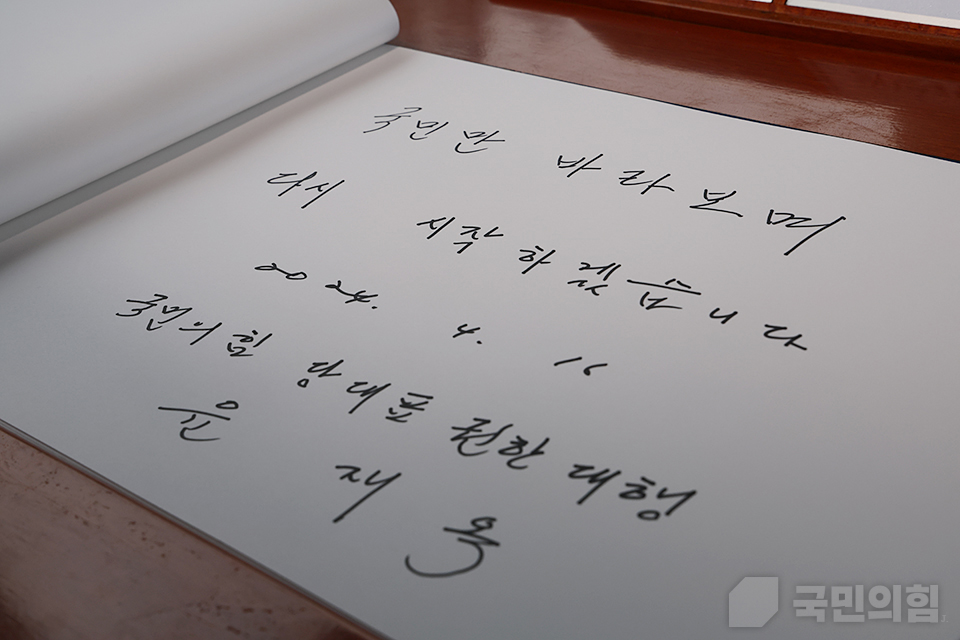 국민만 바라보며
다시 시작하겠습니다
2024. 4. 16
국민의힘 당대표 권한대행
윤재옥
국민의힘